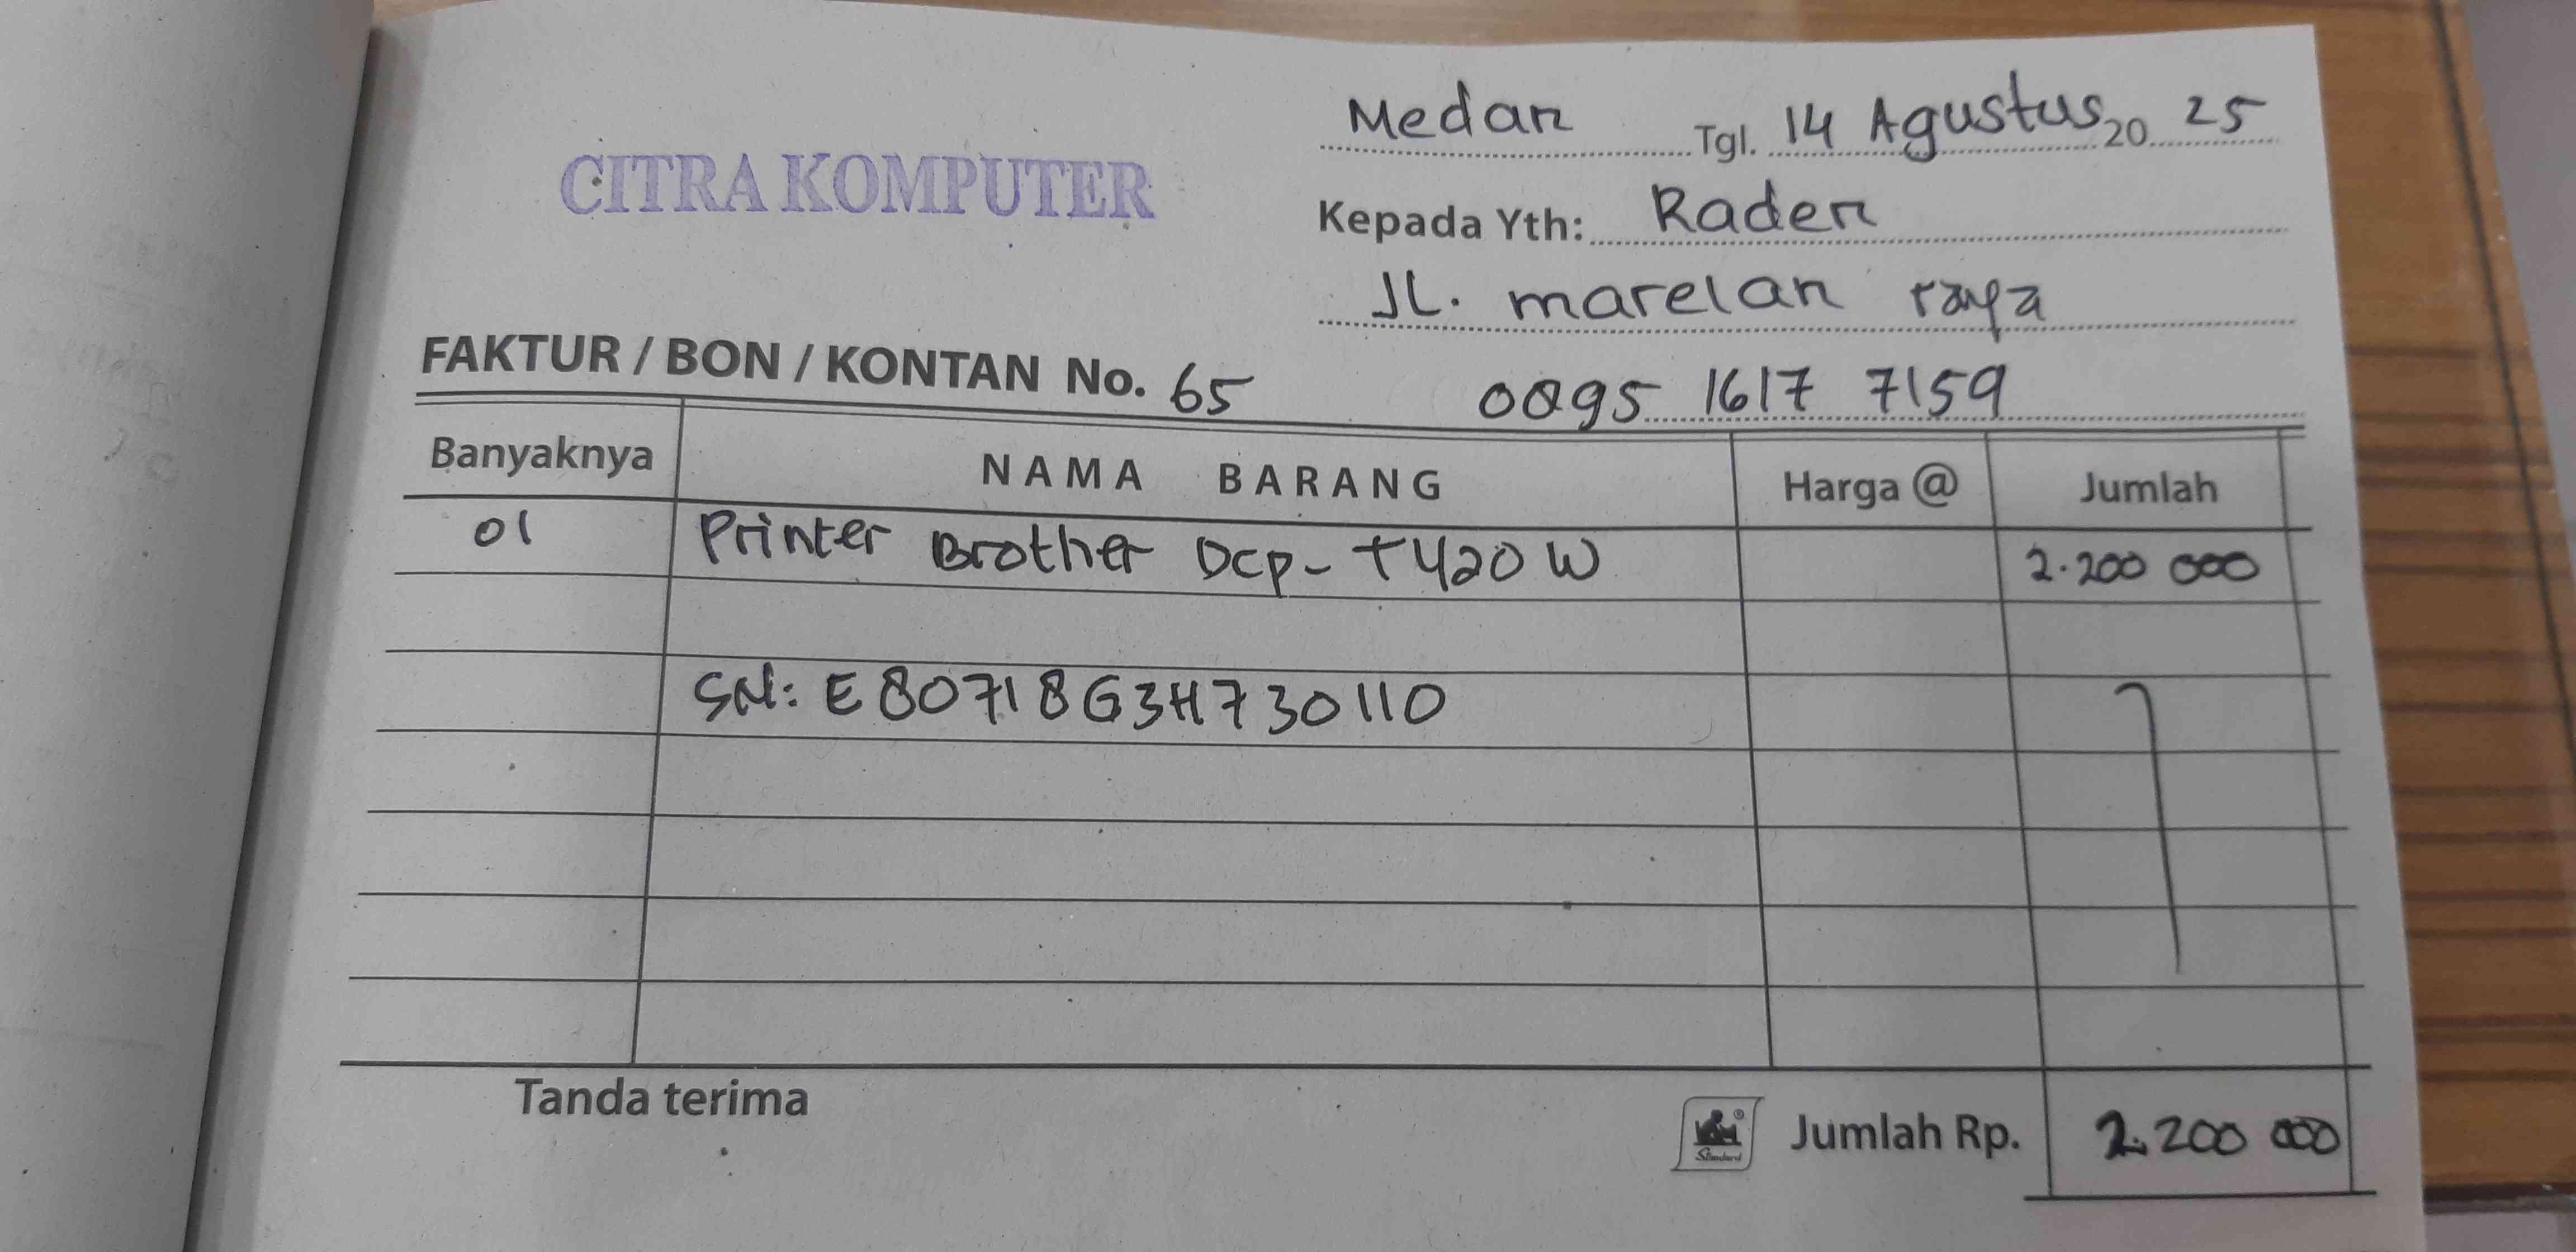 CITRA KOMPUTER
Medan Tgl. 14 Agustus 20 25
Kepada Yth: Raden
JL. marelan raya
FAKTUR / BON / KONTAN No. 65
0895 1617 7159
Banyaknya NAMA BARANG Harga @ Jumlah
01 Printer Brother DCP-T420W 2.200 000
SN: E80718G3H730110
Tanda terima
Standard
Jumlah Rp. 2.200 000